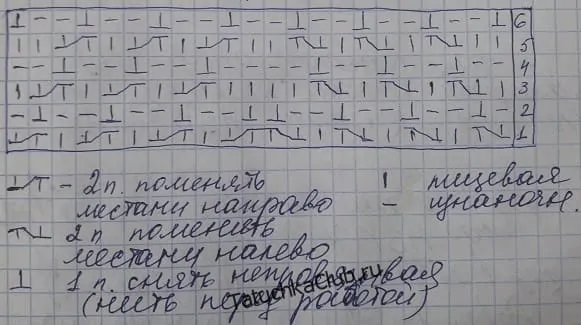 6
5
4
3
2
1
- 2 п. поменять | лицевая
местами направо - изнаночн.
2 п поменять
местами налево
1 п. снять непровязывая
(нить перед работой)
TatychkaClub.ru